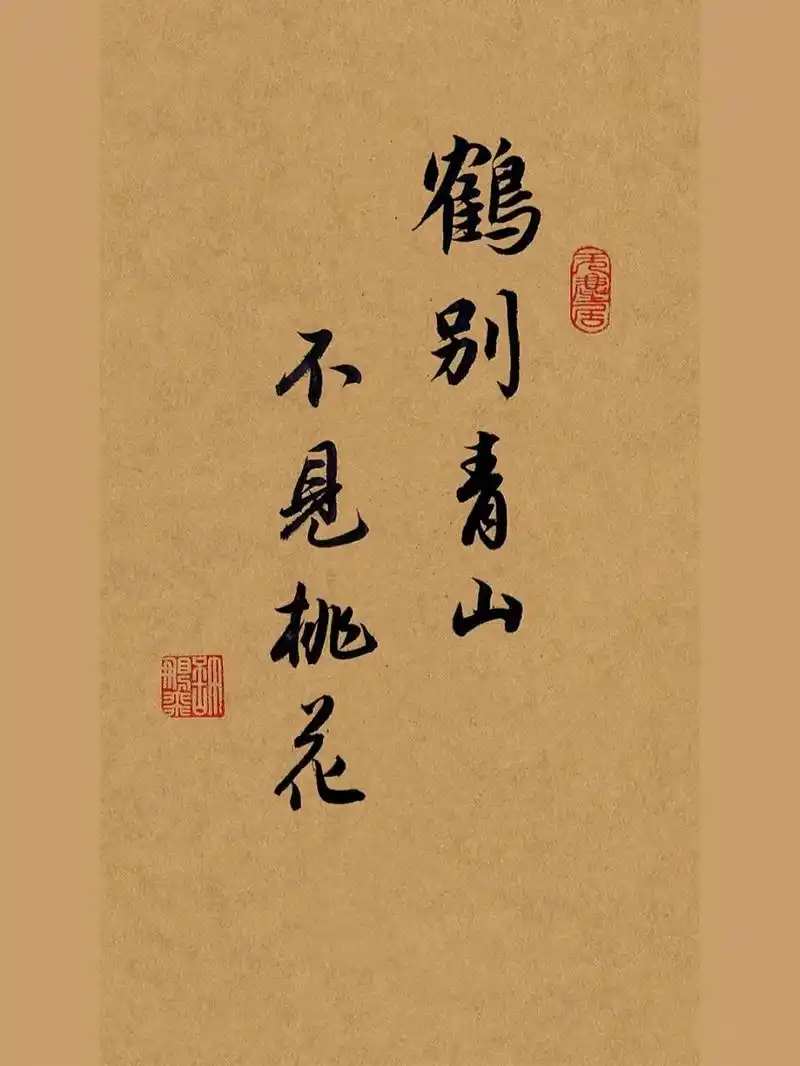 鶴别青山
不見桃花